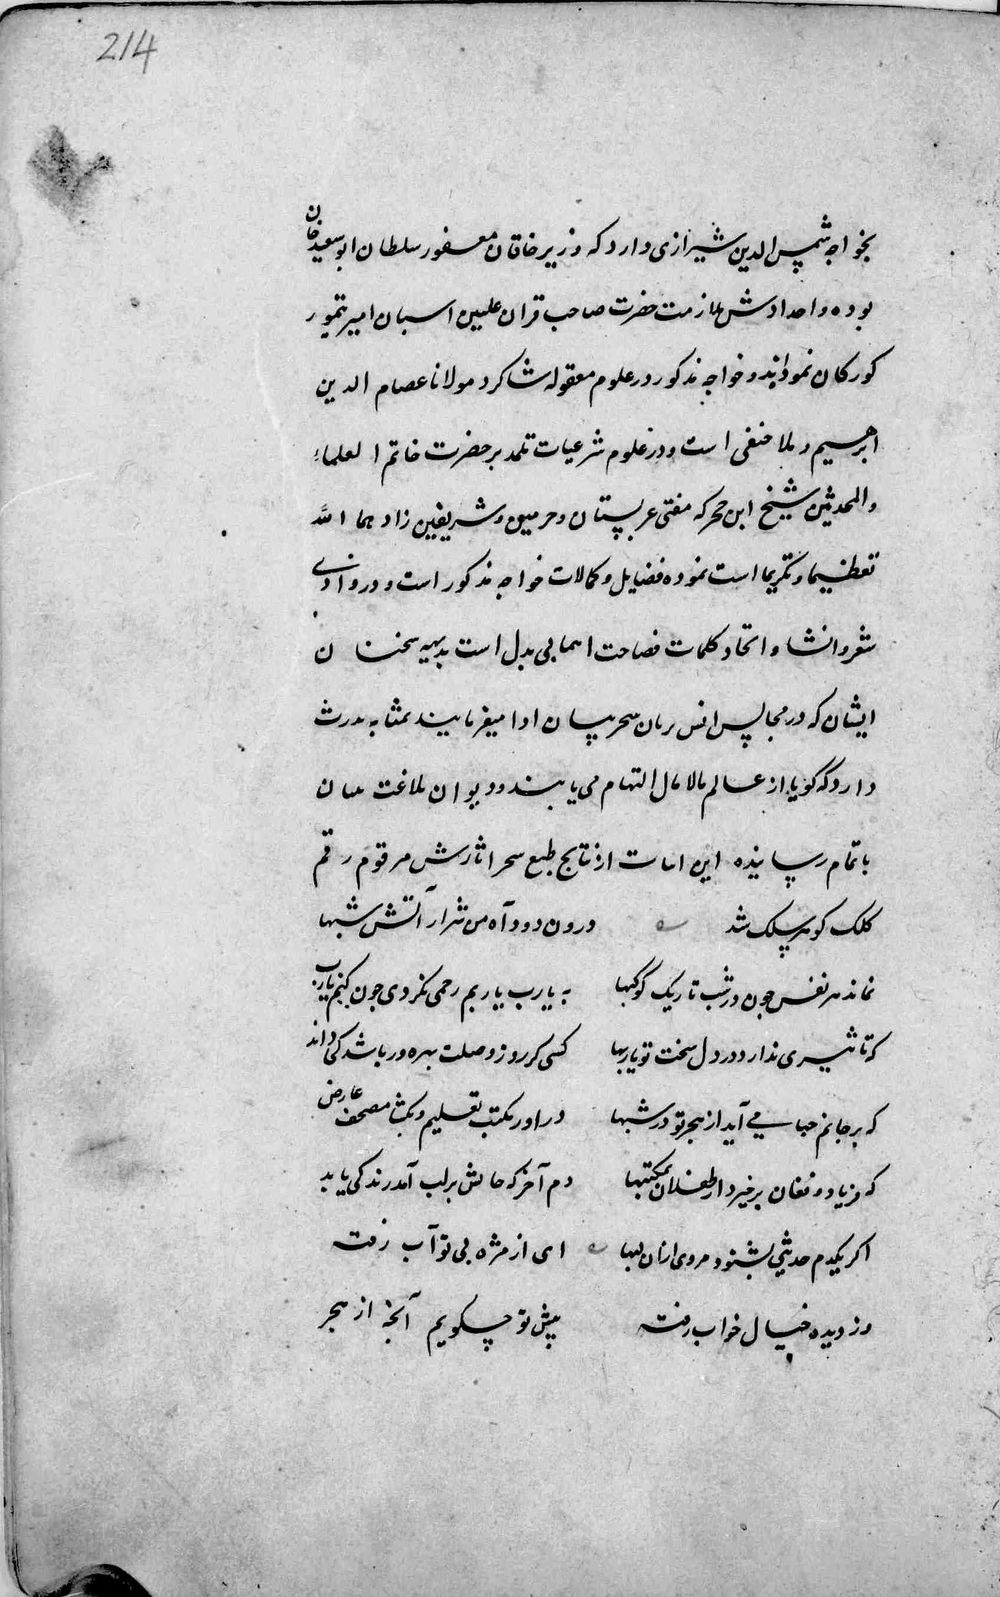 214
بخواجه شمس الدین شیرازی دارد که وزیر خاقان مغفور سلطان ابوسعید خان
بوده و اجدادش ملازمت حضرت صاحب قران علیین اسیان امیر تیمور
کورکان نموده‌اند و خواجه مذکور در علوم معقوله شاکرد مولانا عصام الدین
ابرهیم و ملا حنفی است و در علوم شرعیات تلمد بر حضرت خاتم العلماء
والمحدثین شیخ ابن حجر که مفتی عربستان و حرمین و شریفین زادهما الله
تعظیما و تکریما است نموده فضایل و کمالات خواجه مذکور است و در وادی
شعر و انشا و اتحاد کلمات فصاحت بی بدل است بدیهه سخنان
ایشان که در مجالس انس سحر بیان ادا میفرمایند بمثابه
دارد که کویا از عالم مالامال التهام می یابند و دیوان بلاغت
باتمام رسانیده این ابیات از نتایج طبع سحر اثارش مرقوم رقم
کلک کوهر سلک شد درون دود آه من شرار آتش شبها
نماند هر نفس چون در شب تاریک کوکبها به یارب یاربم رحمی نکردی چون کنم یارب
که تاثیری ندارد در دل سخت تو یاربها کسی کز روز وصلت بهره ور باشد کی داند
که بر جانم می آید از هجر تو در شبها در اور مکتب تعلیم و بکشا مصحف عارض
که فریاد و فغان برخیزد از طفلان بمکتبها دم آخر که جانش بر لب آمد زندکی یابد
اکر یکدم حدیثی بشنود مروی ازان لبها ای از مژه بی تو آب رفته
وز دیده خیال خواب رفته پیش تو چکویم آنچه از هجر